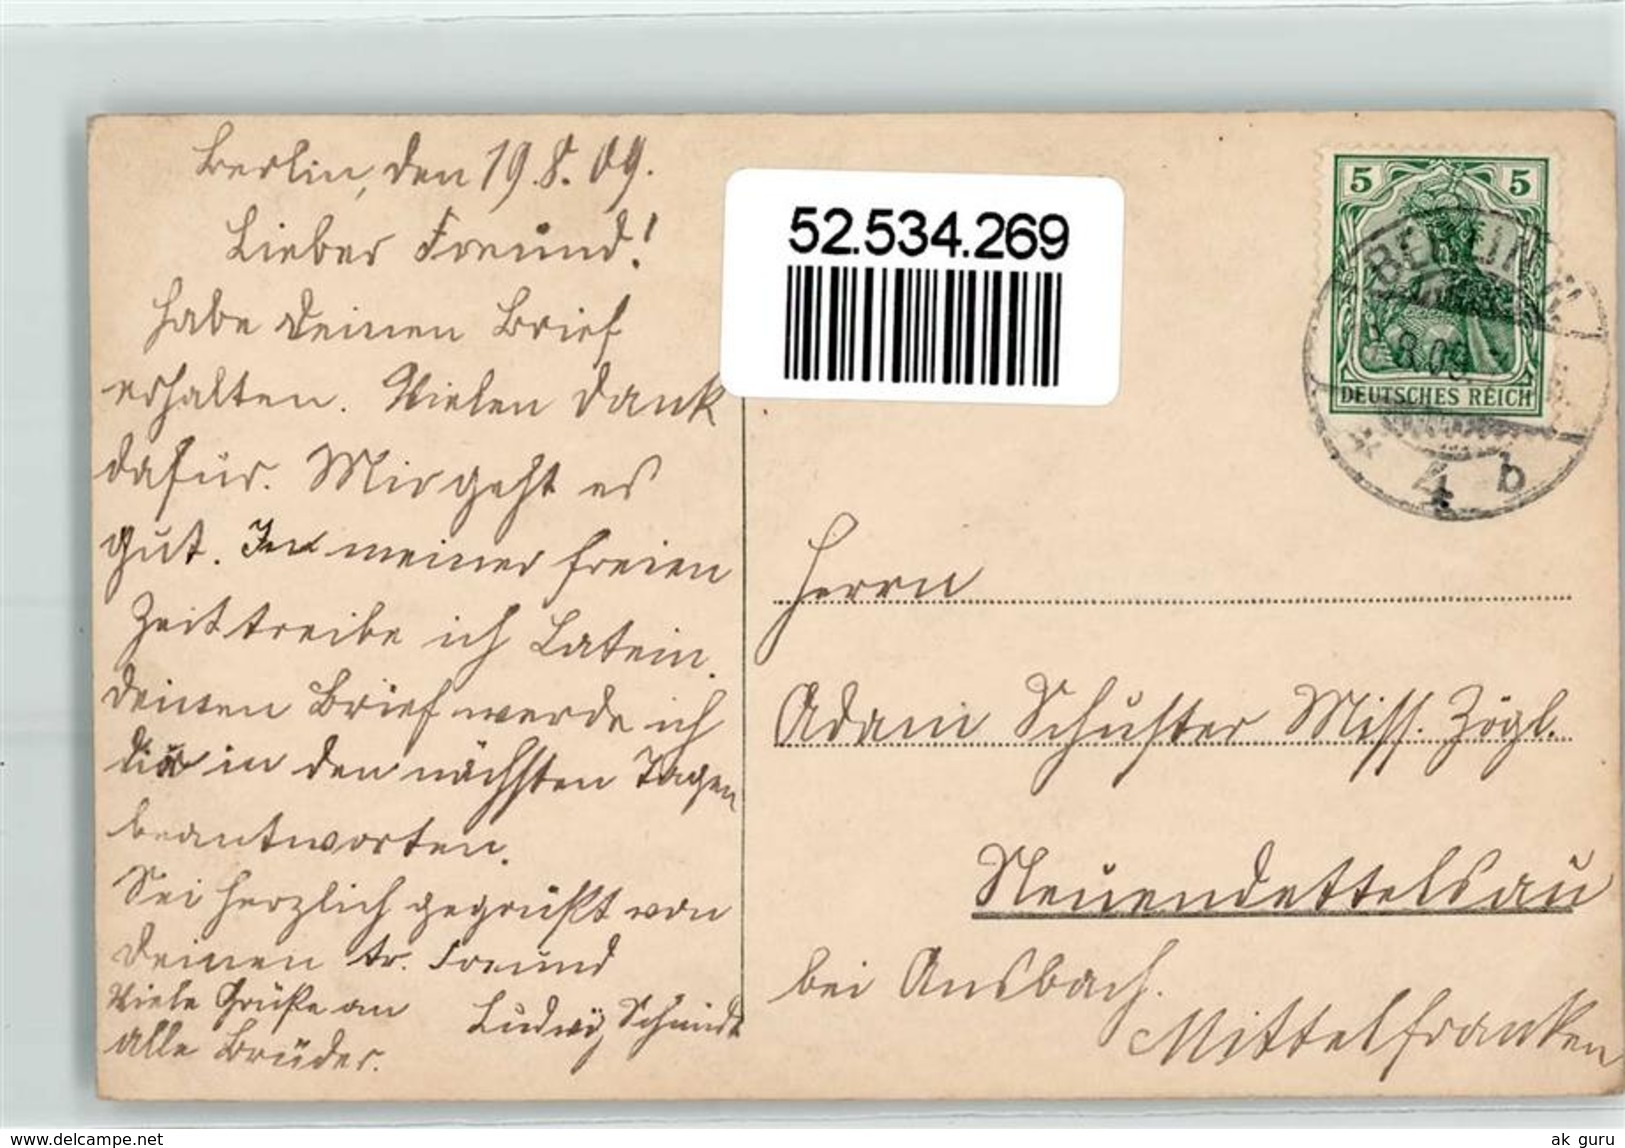 Berlin, den 19.8.09.
Lieber Freund!
Habe Deinen Brief
erhalten. Vielen Dank
dafür. Mir geht es
gut. In meiner freien
Zeit treibe ich Latein.
Deinen Brief werde ich
dir in den nächsten Tagen
beantworten.
Sei herzlich gegrüßt von
Deinem tr. Freund
Ludwig Schmidt
Viele Grüße an
alle Brüder.
52.534.269
5 5
DEUTSCHES REICH
BERLIN
8.09
* 4 b
Herrn
Adam Schuster Miss. Zögl.
Neuendettelsau
bei Ansbach.
Mittelfranken
www.delcampe.net
ak_guru